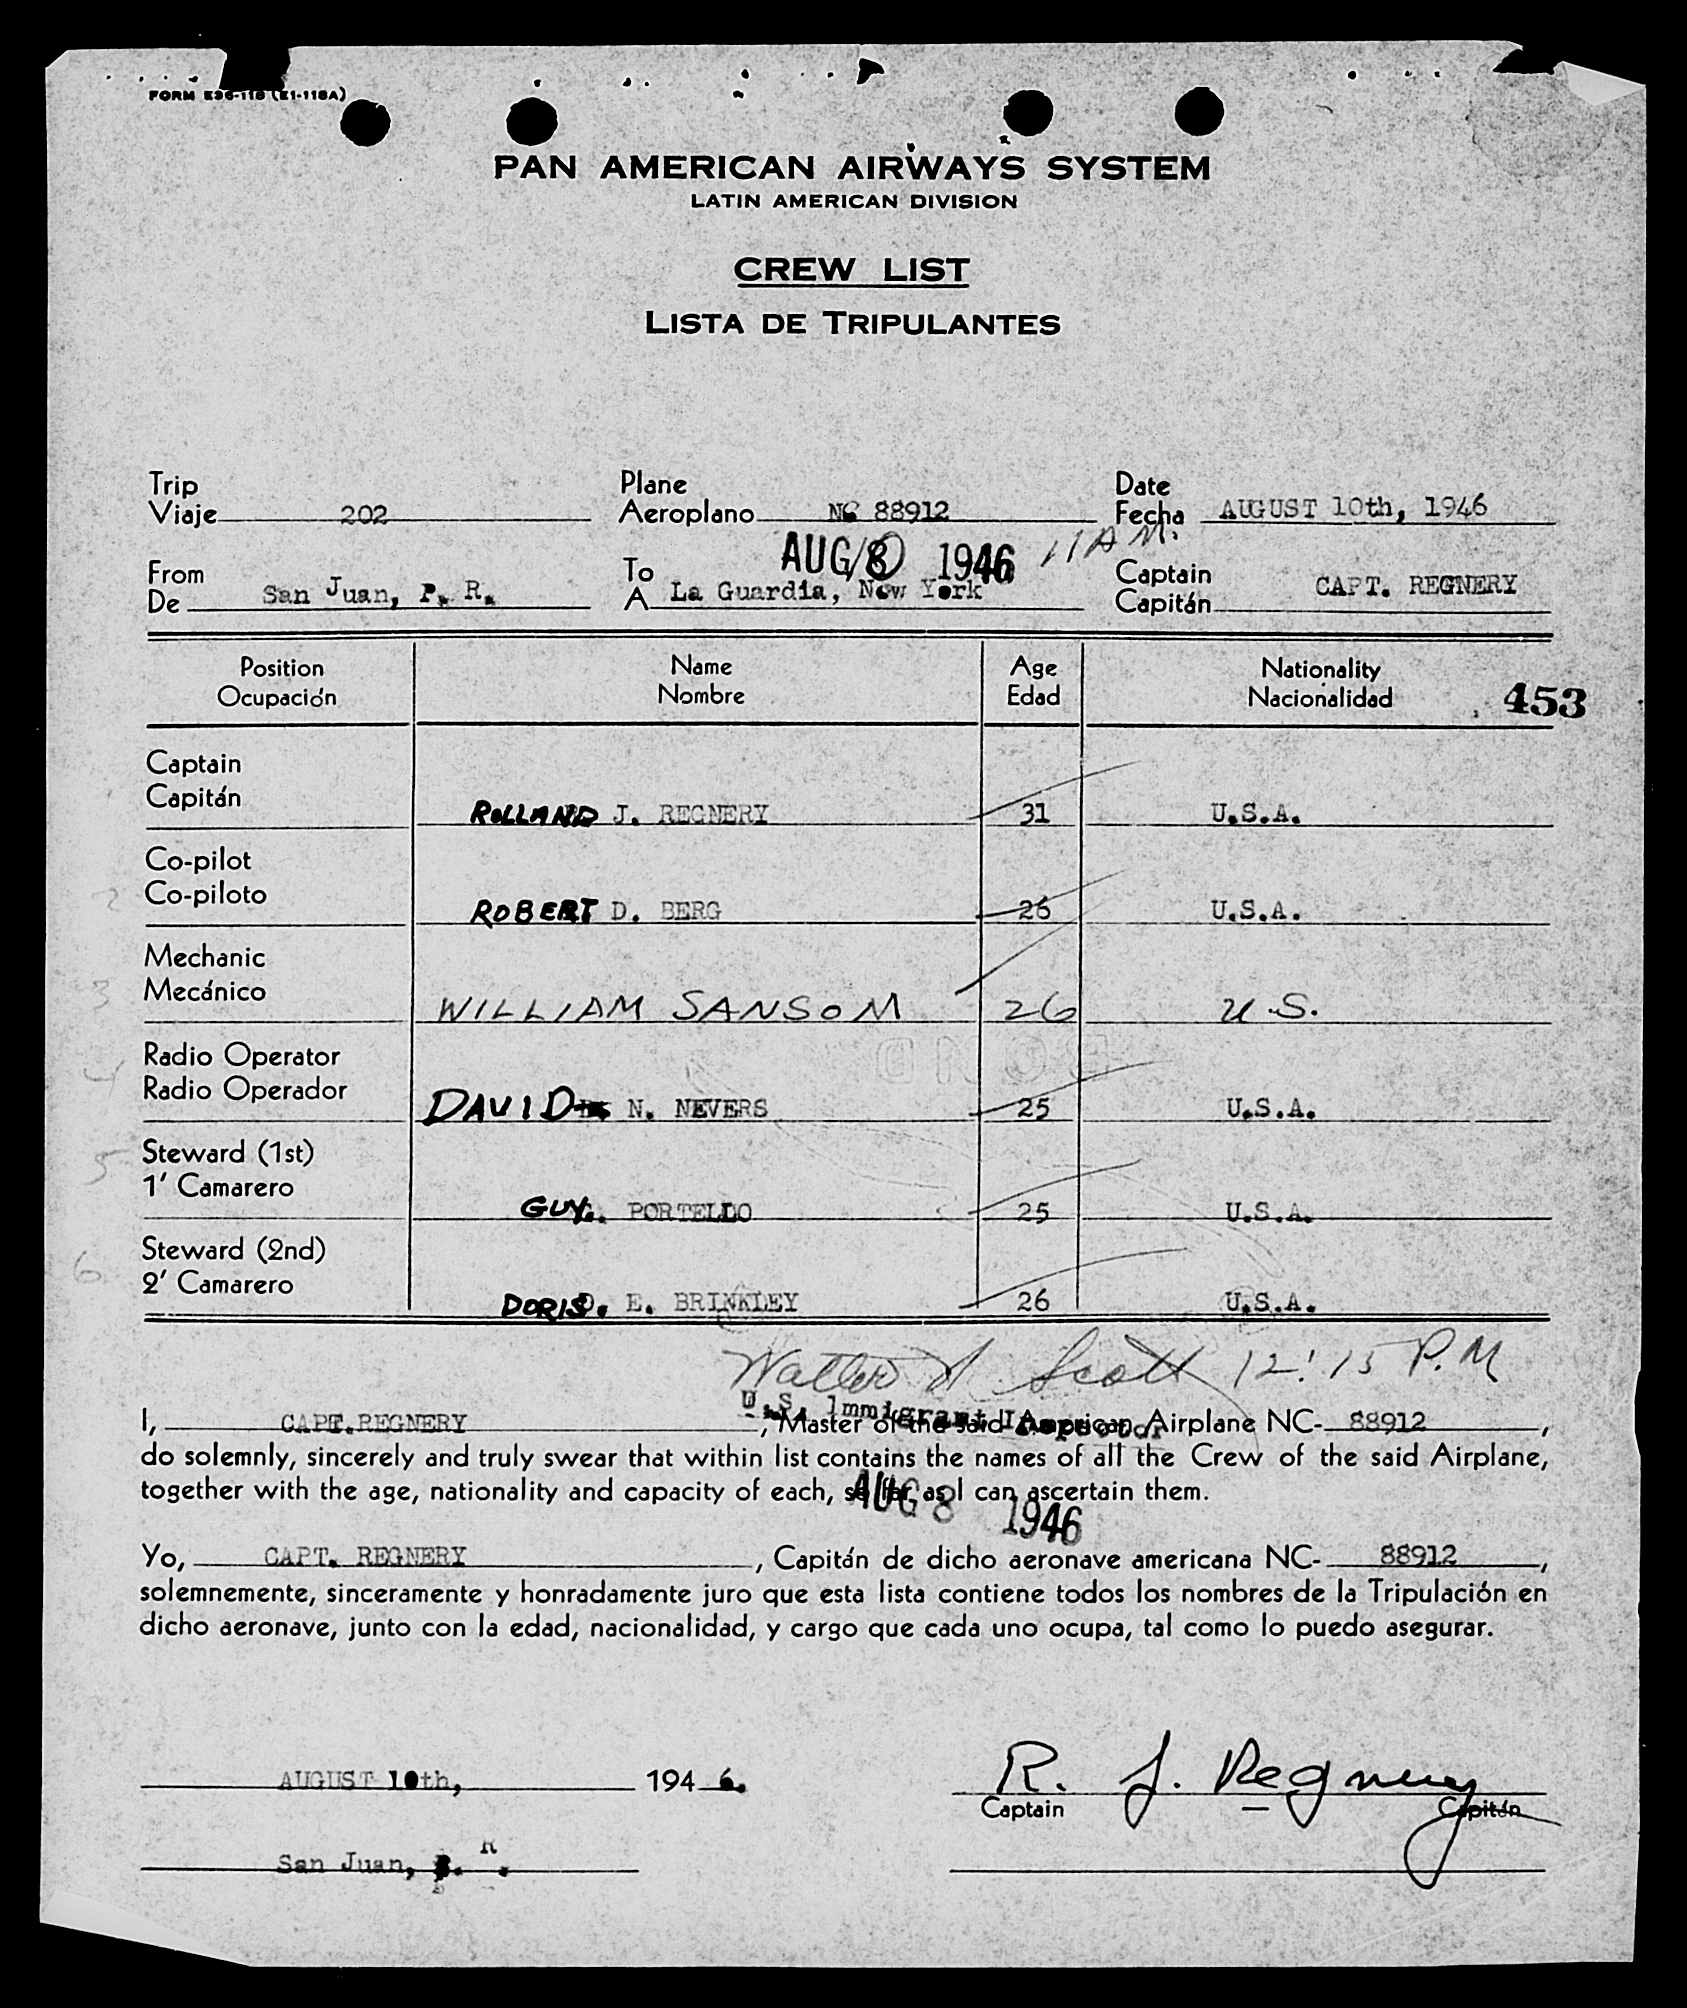 FORM E36-118 (E1-118A)
PAN AMERICAN AIRWAYS SYSTEM
LATIN AMERICAN DIVISION
CREW LIST
LISTA DE TRIPULANTES
Trip Plane Date
Viaje 202 Aeroplano NC 88912 Fecha AUGUST 10th, 1946
AUG 8 1946 11 A M.
From To Captain
De San Juan, P. R. A La Guardia, New York Capitán CAPT. REGNERY
Position Name Age Nationality
Ocupación Nombre Edad Nacionalidad 453
Captain
Capitán ROLLAND J. REGNERY 31 U.S.A.
Co-pilot
2 Co-piloto ROBERT D. BERG 26 U.S.A.
Mechanic
3 Mecánico WILLIAM SANSOM 26 U.S.
Radio Operator
4 Radio Operador DAVID N. NEVERS 25 U.S.A.
Steward (1st)
5 1' Camarero GUY. PORTELLO 25 U.S.A.
Steward (2nd)
6 2' Camarero DORIS. E. BRINKLEY 26 U.S.A.
Walter Scott 12:15 P.M
U.S. Immigrant Inspector
I, CAPT. REGNERY, Master of the said American Airplane NC- 88912,
do solemnly, sincerely and truly swear that within list contains the names of all the Crew of the said Airplane,
together with the age, nationality and capacity of each, so far as I can ascertain them.
AUG 8 1946
Yo, CAPT. REGNERY, Capitán de dicho aeronave americana NC- 88912,
solemnemente, sinceramente y honradamente juro que esta lista contiene todos los nombres de la Tripulación en
dicho aeronave, junto con la edad, nacionalidad, y cargo que cada uno ocupa, tal como lo puedo asegurar.
AUGUST 10th, 194 6. R. J. Regnery
Captain Capitán
San Juan, P. R.